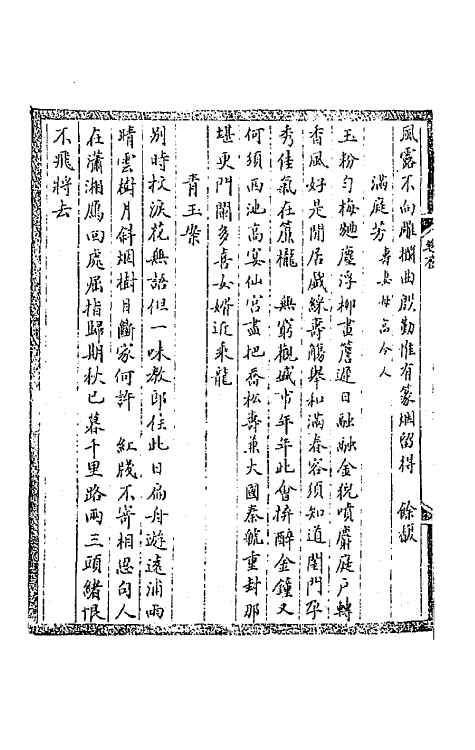 風露不向雕欄曲殷勤惟有篆烟留得　餘馥
滿庭芳　壽妻母高令人
玉粉勻梅麯塵浮柳畫簷遲日融融金猊噴麝庭戶轉
香風好是閒居戲綵壽觴舉和滿春容須知道閨門孕
秀佳氣在簾櫳　無窮觀盛事年年此會拚醉金鐘又
何須西池高宴仙宮盡把喬松壽兼大國秦虢重封那
堪更門闌多喜女婿近乘龍
青玉案
別時枝淚花無語但一味教郎住此日扁舟遊遠浦雨
晴雲樹月斜烟樹目斷家何許　紅牋不寄相思句人
在瀟湘鴈回處屈指歸期秋已暮千里路兩三頭緒恨
不飛將去